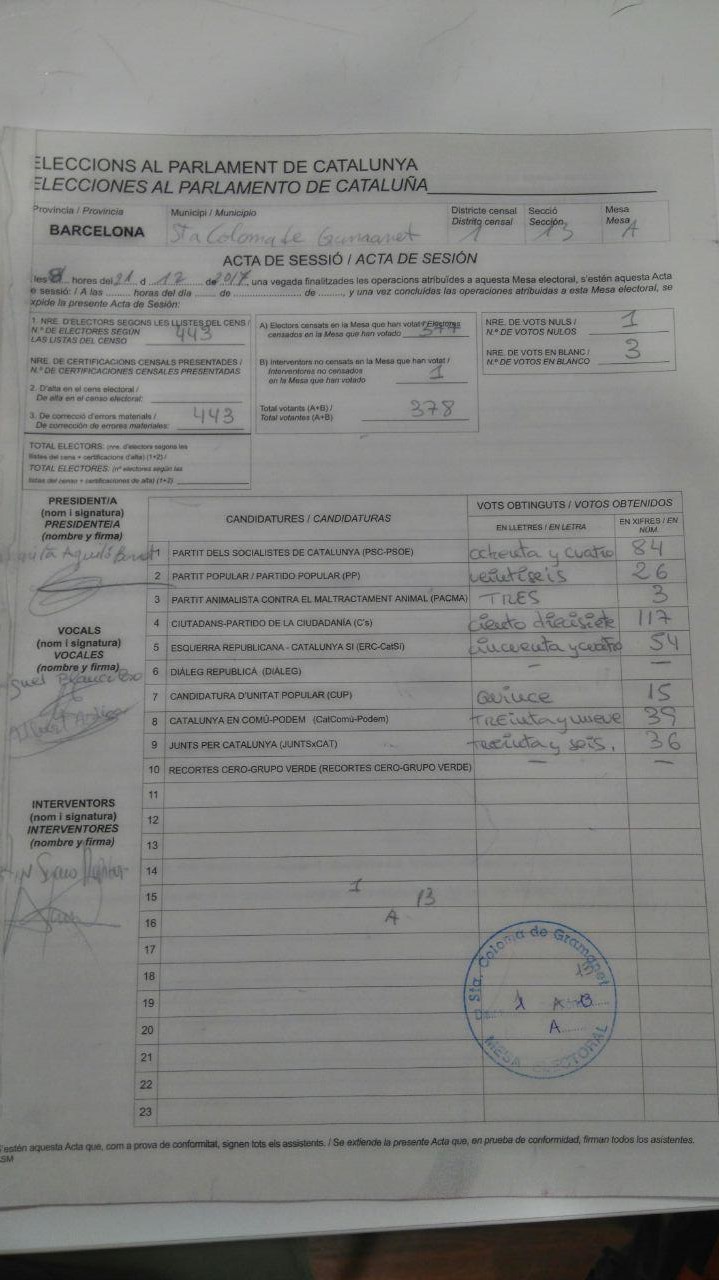 ELECCIONS AL PARLAMENT DE CATALUNYA
ELECCIONES AL PARLAMENTO DE CATALUÑA
Provincia / Provincia Municipi / Municipio Districte censal Secció Mesa
Distrito censal Sección Mesa
BARCELONA Sta Coloma de Gramanet 1 13 A
ACTA DE SESSIÓ / ACTA DE SESIÓN
les 8 hores del 21 d 12 de 2017 una vegada finalitzades les operacions atribuïdes a aquesta Mesa electoral, s'estén aquesta Acta
e sessió: / A las ........ horas del día ........ de ........................ de ........, y una vez concluidas las operaciones atribuidas a esta Mesa electoral, se
xpide la presente Acta de Sesión:
1. NRE. D'ELECTORS SEGONS LES LLISTES DEL CENS /
N.º DE ELECTORES SEGÚN
LAS LISTAS DEL CENSO 443
NRE. DE CERTIFICACIONS CENSALS PRESENTADES /
N.º DE CERTIFICACIONES CENSALES PRESENTADAS
2. D'alta en el cens electoral /
De alta en el censo electoral:
3. De correcció d'errors materials /
De corrección de errores materiales: 443
TOTAL ELECTORS: (nre. d'electors segons les
llistes del cens + certificacions d'alta) (1+2) /
TOTAL ELECTORES: (nº electores según las
listas del censo + certificaciones de alta) (1+2)
A) Electors censats en la Mesa que han votat / Electores
censados en la Mesa que han votado 377
B) Interventors no censats en la Mesa que han votat /
Interventores no censados
en la Mesa que han votado 1
Total votants (A+B) /
Total votantes (A+B) 378
NRE. DE VOTS NULS /
N.º DE VOTOS NULOS 1
NRE. DE VOTS EN BLANC /
N.º DE VOTOS EN BLANCO 3
PRESIDENT/A
(nom i signatura)
PRESIDENTE/A
(nombre y firma)
VOCALS
(nom i signatura)
VOCALES
(nombre y firma)
INTERVENTORS
(nom i signatura)
INTERVENTORES
(nombre y firma)
CANDIDATURES / CANDIDATURAS VOTS OBTINGUTS / VOTOS OBTENIDOS
EN LLETRES / EN LETRA EN XIFRES / EN NÚM.
1 PARTIT DELS SOCIALISTES DE CATALUNYA (PSC-PSOE) ochenta y cuatro 84
2 PARTIT POPULAR / PARTIDO POPULAR (PP) veintiseis 26
3 PARTIT ANIMALISTA CONTRA EL MALTRACTAMENT ANIMAL (PACMA) TRES 3
4 CIUTADANS-PARTIDO DE LA CIUDADANÍA (C's) ciento diecisiete 117
5 ESQUERRA REPUBLICANA - CATALUNYA SÍ (ERC-CatSí) cincuenta y cuatro 54
6 DIÀLEG REPUBLICÀ (DIÀLEG) — —
7 CANDIDATURA D'UNITAT POPULAR (CUP) Quince 15
8 CATALUNYA EN COMÚ-PODEM (CatComú-Podem) TREinta y nueve 39
9 JUNTS PER CATALUNYA (JUNTSxCAT) treinta y seis. 36
10 RECORTES CERO-GRUPO VERDE (RECORTES CERO-GRUPO VERDE) — —
11
12
13
14
15 1 13
16 A
17
18
19
20
21
22
23
Sta. Coloma de Gramanet
13
1 A 13
A
MESA ELECTORAL
S'estén aquesta Acta que, com a prova de conformitat, signen tots els assistents. / Se extiende la presente Acta que, en prueba de conformidad, firman todos los asistentes.